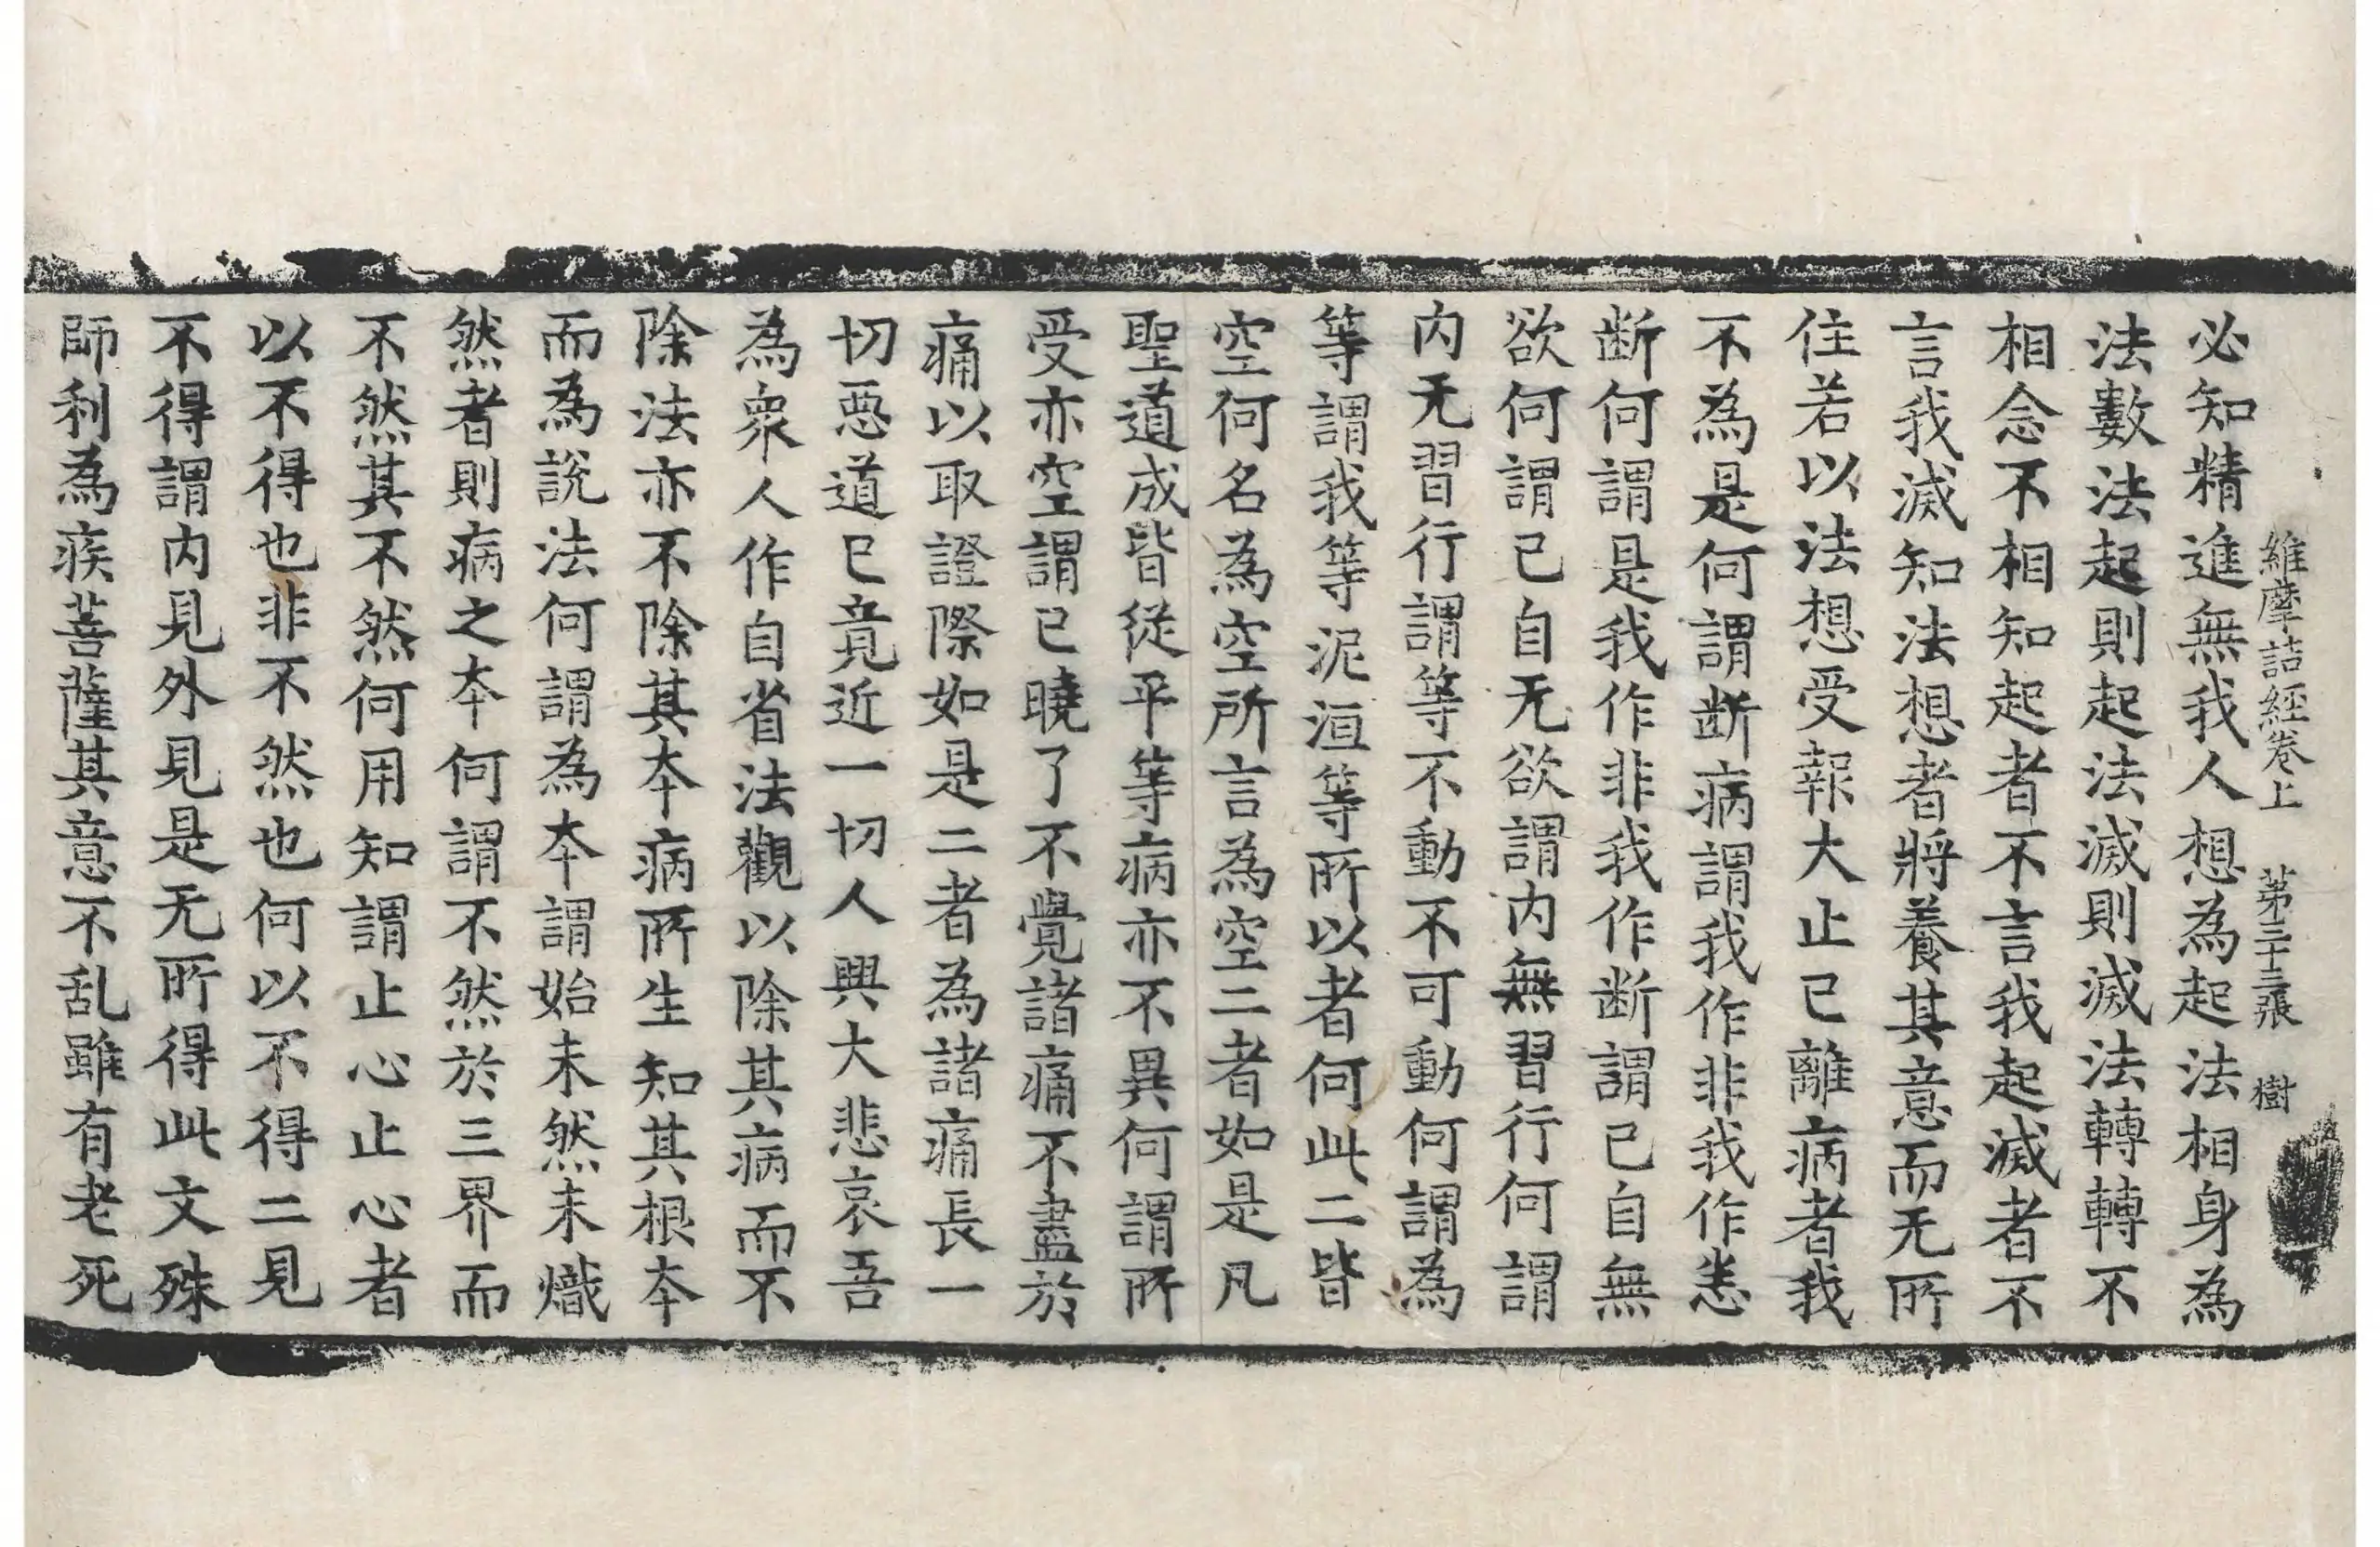 維摩詰經卷上　第二十三張　樹
必知精進無我人想為起法相身為
法數法起則起法滅則滅法轉轉不
相念不相知起者不言我起滅者不
言我滅知法想者將養其意而无所
住若以法想受報大止已離病者我
不為是何謂断病謂我作非我作悉
断何謂是我作非我作断謂已自無
欲何謂已自无欲謂内無習行何謂
内无習行謂等不動不可動何謂為
等謂我等泥洹等所以者何此二皆
空何名為空所言為空二者如是凡
聖道成皆從平等病亦不異何謂所
受亦空謂已曉了不覺諸痛不盡於
痛以取證際如是二者為諸痛長一
切惡道已竟近一切人興大悲哀吾
為衆人作自省法觀以除其病而不
除法亦不除其夲病所生知其根夲
而為說法何謂為夲謂始未然未熾
然者則病之夲何謂不然於三界而
不然其不然何用知謂止心止心者
以不得也非不然也何以不得二見
不得謂内見外見是无所得此文殊
師利為疾菩薩其意不乱雖有老死